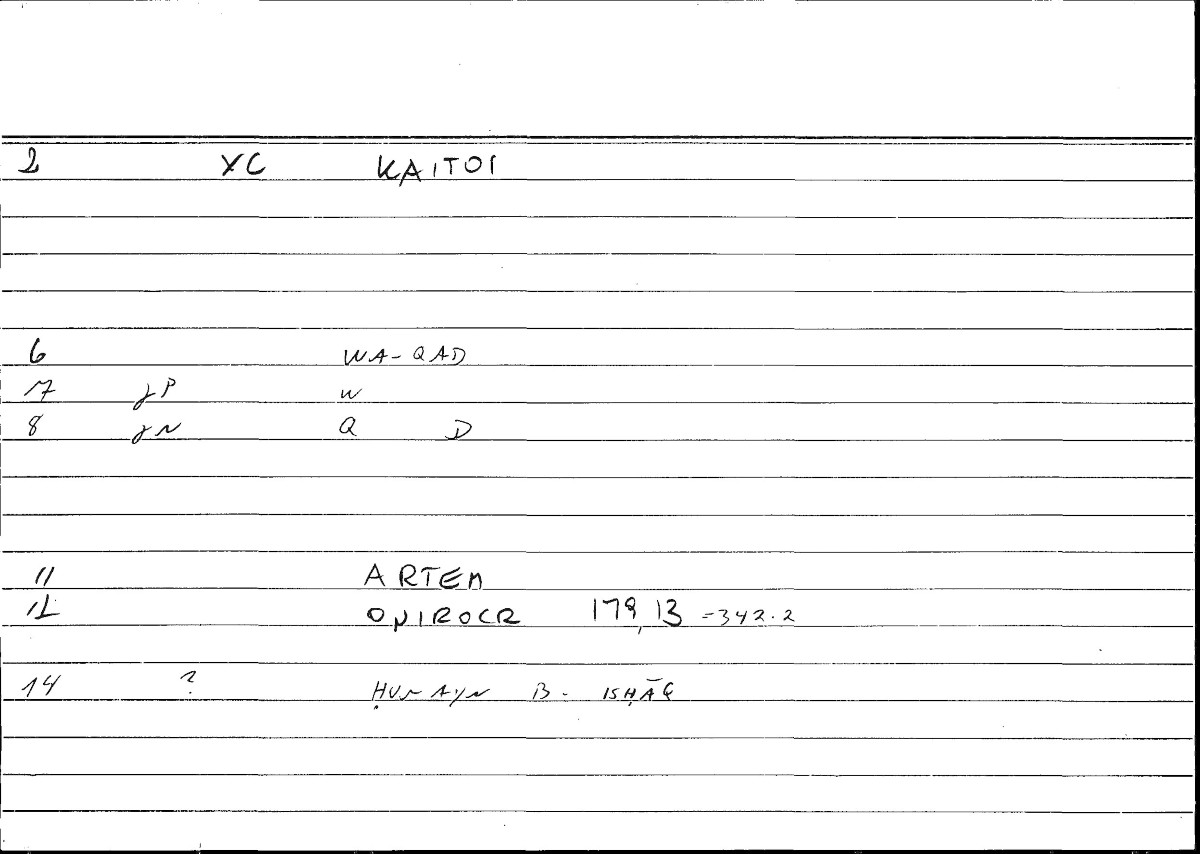 2 XC KAITOI
6 WA-QAD
7 γP W
8 γN Q D
11 ARTEM
12 ONIROCR 179,13 =342.2
14 ? ḤUNAYN B. ISḤĀQ